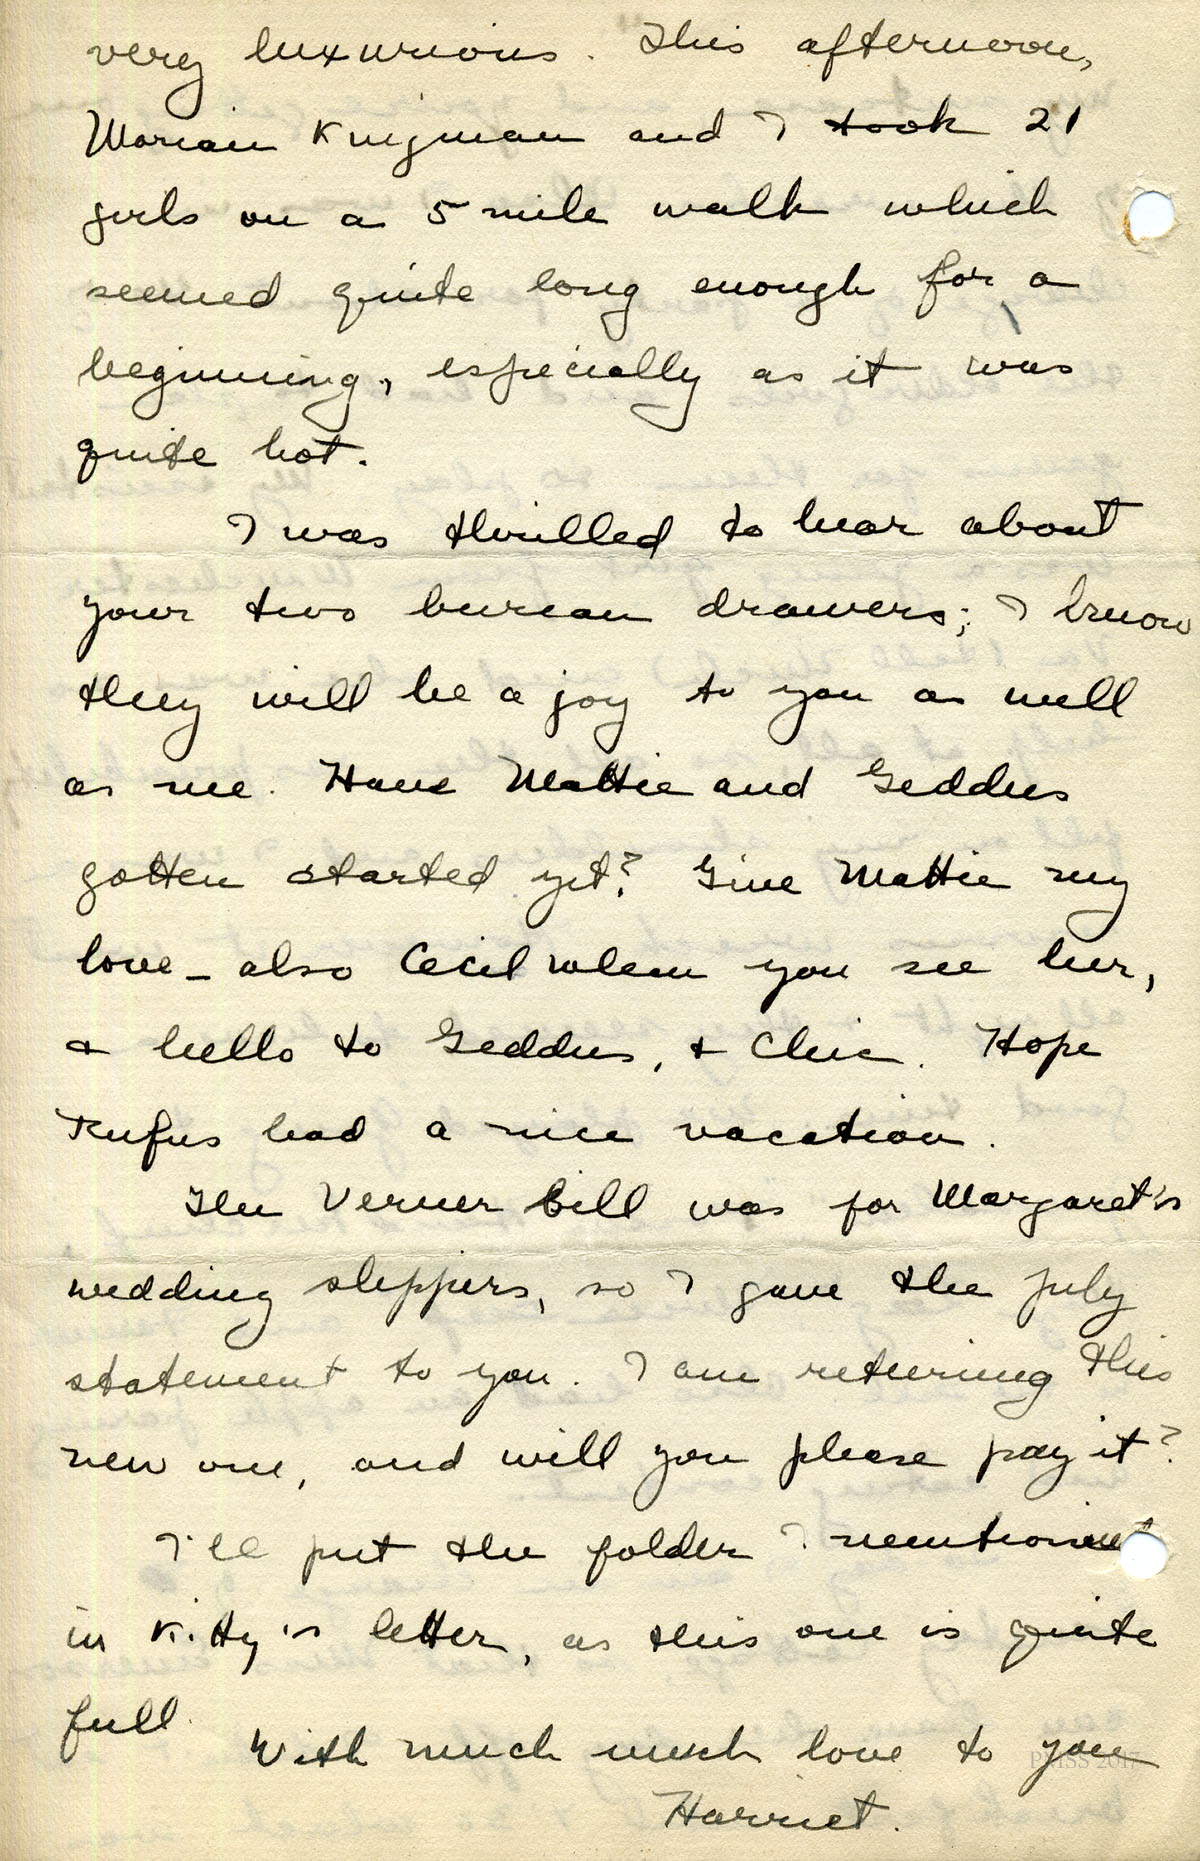 very luxurious. This afternoon,
Marian Kingman and I took 21
girls on a 5 mile walk which
seemed quite long enough for a
beginning, especially as it was
quite hot.
I was thrilled to hear about
your two bureau drawers; I know
they will be a joy to you as well
as me. Have Mattie and Geddes
gotten started yet? Give Mattie my
love - also Cecil when you see her,
& hello to Geddes, & Chic. Hope
Rufus had a nice vacation.
The Verner bill was for Margaret's
wedding slippers, so I gave the July
statement to you. I am returning this
new one, and will you please pay it?
I'll put the folder I mentioned
in Kitty's letter, as this one is quite
full.
With much much love to you
Harriet.
PMSS 2017